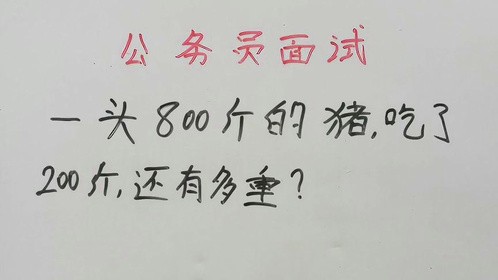 公务员面试
一头800斤的猪,吃了
200斤,还有多重?